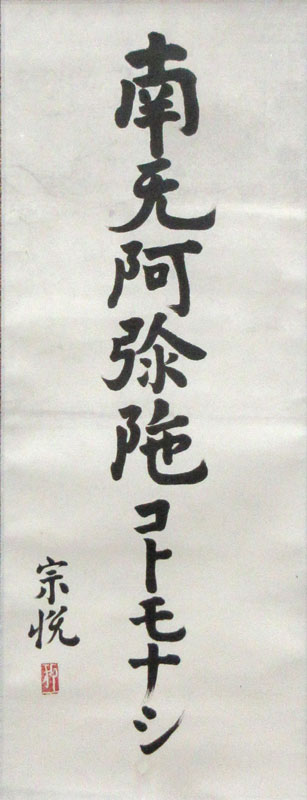 南无阿弥陁コトモナシ
宗悦